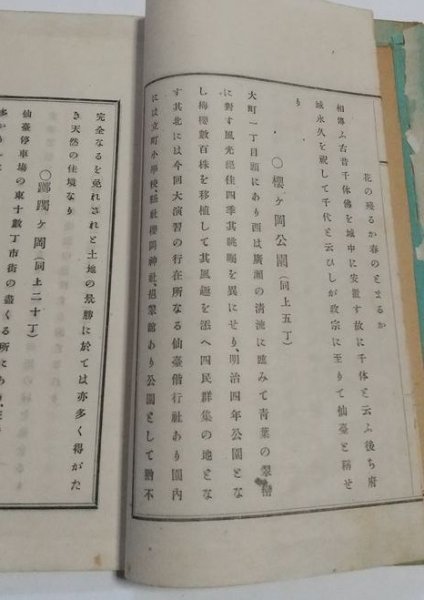 花の殘るか春のとまるか
相傳ふ古昔千体佛を城中に安置す故に千体と云ふ後ち府
城永久を祝して千代と云ひしが政宗に至りて仙臺と稱せ
り
〇櫻ヶ岡公園(同上五丁)
大町一丁目頭にあり西は廣瀬の清流に臨みて青葉の翠巒
に對す風光絕佳四季其眺矚を異にせり、明治四年公園とな
し梅櫻數百株を移植して其風趣を添へ四民群集の地とな
す其北には今回大演習の行在所なる仙臺偕行社あり園內
には立町小學校、縣社櫻岡神社、挹翠館あり公園として稍不
完全なるを免れされと土地の景勝に於ては亦多く得がた
き天然の佳境なり
〇躑躅ヶ岡(同上二十丁)
仙臺停車場の東十數丁市街の盡くる所にあり